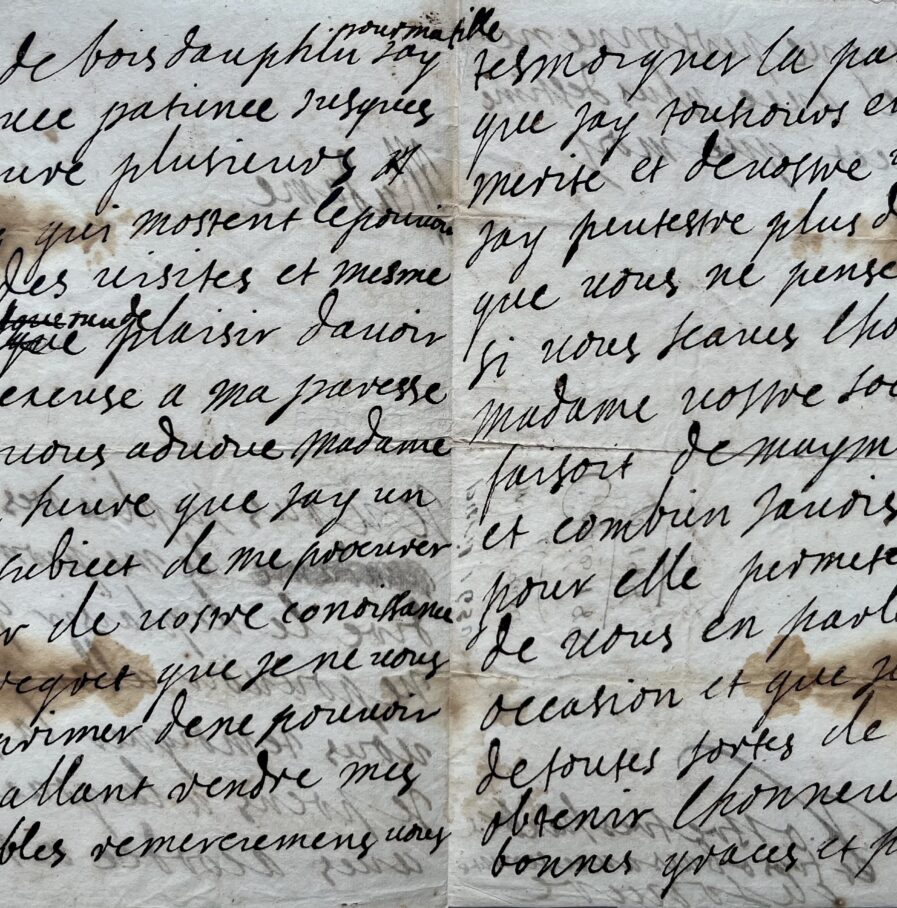 pour ma fille
de bois dauphin jay
patience jusques
plusieurs
qui mostent le pouvoir
des visites et mesme
plaisir davoir
excuse a ma paresse
vous advoue madame
heure que jay un
subiect de me procurer
de vostre conoissance
regret que je ne vous
primer de ne pouvoir
allant rendre mes
bles remerciemens vous
tesmoigner la pa
que jay tousiours e
merite et de vostre
jay peutestre plus d
que vous ne pense
si vous scaves lho
madame vostre soe
faisoit de maym
et combien javois
pour elle permete
de vous en parle
occasion et que je
de toutes sortes de
obtenir lhonneu
bonnes graces et p